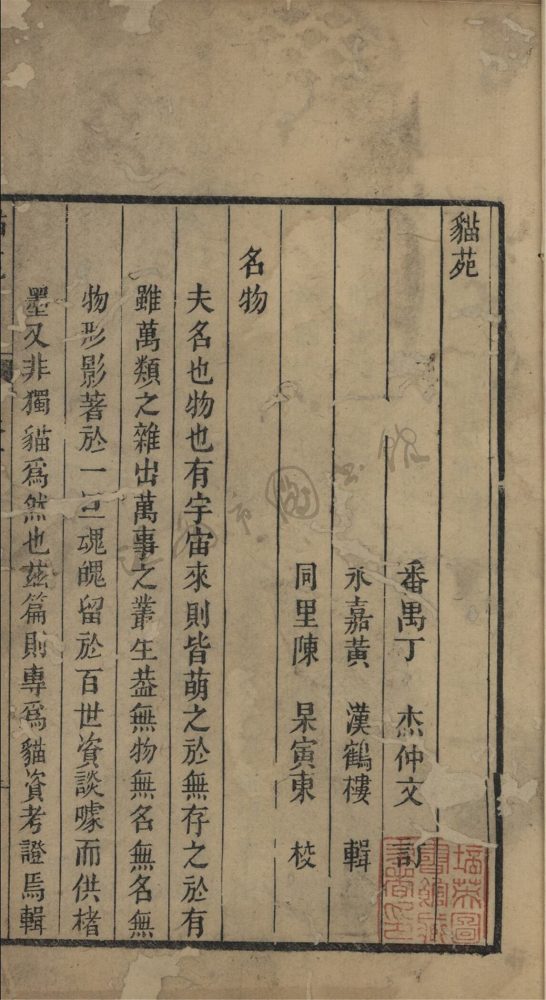 貓苑
番禺丁 杰仲文 訂
永嘉黃 漢鶴樓 輯
同里陳 杲寅東 校
名物
夫名也物也有宇宙來則皆萌之於無存之於有
雖萬類之雜出萬事之叢生葢無物無名無名無
物形影著於一五魂魄留於百世資談噱而供楮
墨又非獨貓爲然也茲篇則專爲貓資考證焉輯